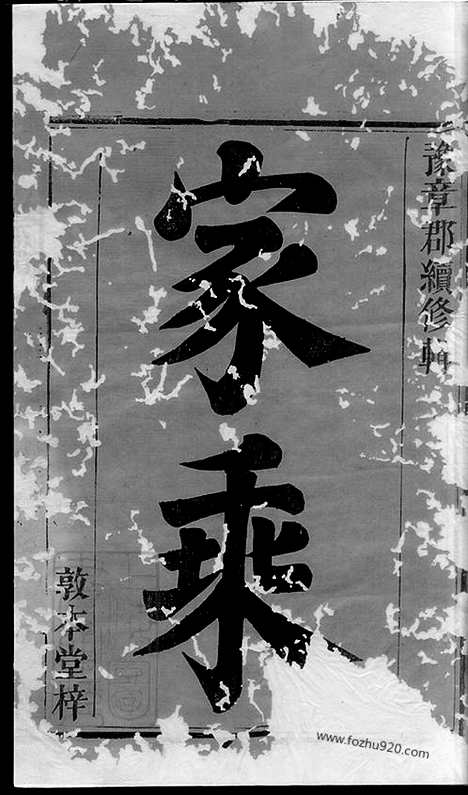 豫章郡續修輯
家乘
敦本堂梓
www.fozhu920.com